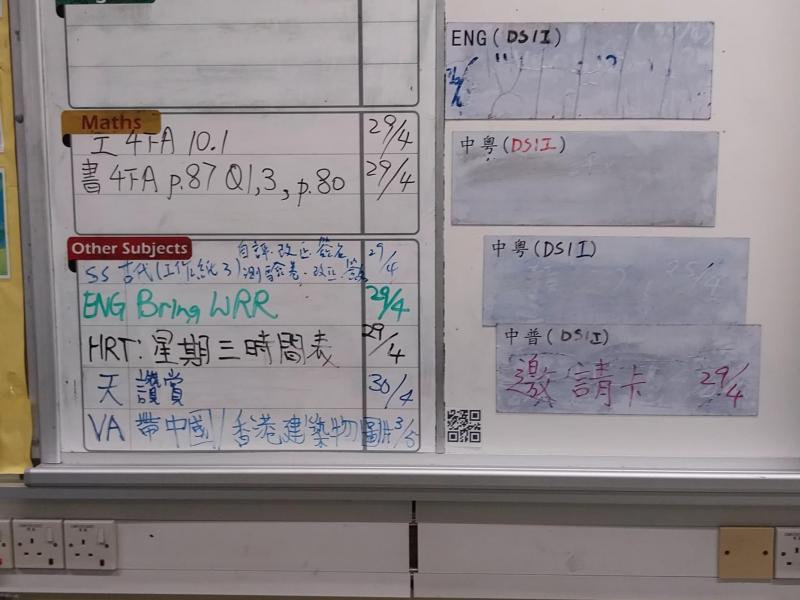 Maths
工 4下A 10.1 29/4
書 4下A p.87 Q1,3, p.80 29/4
Other Subjects
自評·改正·簽名 29/4
SS 古代(工作紙3)測驗卷·改正·簽
ENG Bring WRR 29/4
HRT: 星期三時間表 29/4
天 讚賞 30/4
VA 帶中國/香港建築物圖片 3/5
ENG(DS1I)
中粵(DS1I)
中粵(DS1I)
25/4
中普(DS1I)
邀請卡 29/4